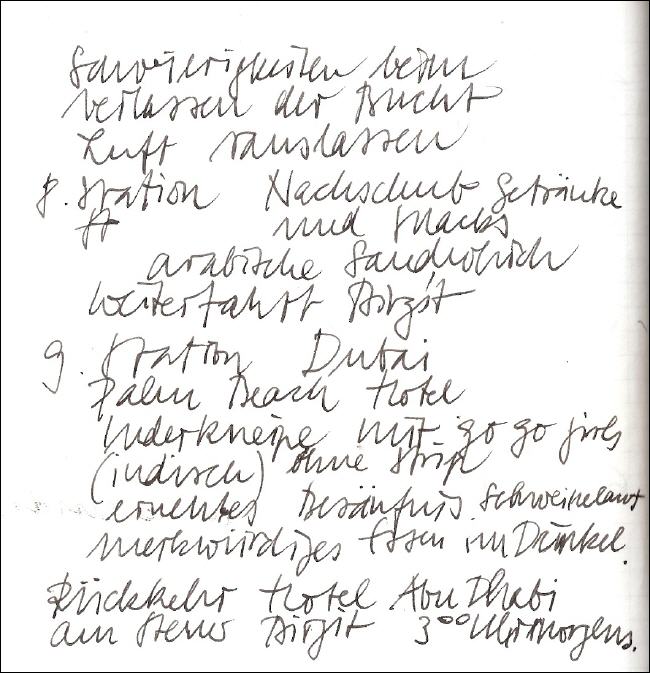 Schwierigkeiten beim
verlassen der Bucht
Luft rauslassen
8. Station Nachschub Getränke
und Snacks
arabische Sandwich
Weiterfahrt Birgit
9. Station Dubai
Palm Beach Hotel
Inderkneipe mit go go girls
(indisch) ohne Strip
erneutes Besäufnis Schweinelaut
merkwürdiges Essen im Dunkel.
Rückkehr Hotel Abu Dhabi
am Steuer Birgit 3⁰⁰ Uhr morgens.